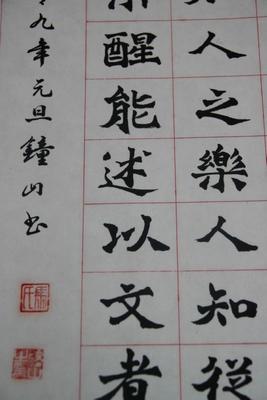 人之樂人知從
醒能述以文者
九年元旦鐘山書